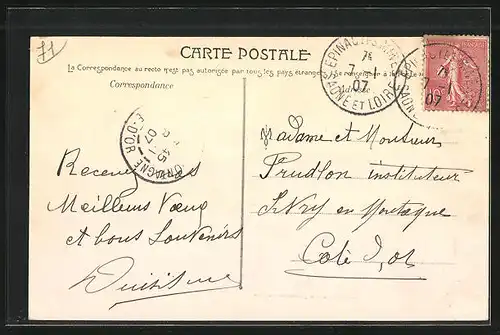 71
CARTE POSTALE
La Correspondance au recto n'est pas autorisée par tous les pays étrangers (Se renseigner à la Poste)
Correspondance
Adresse
EPINAC LES MINES
7 -1
07
SAONE ET LOIRE
07
07
COTE D'OR
10
Madame et Monsieur
Prudlon instituteur
Ivry en Montagne
Cote d'or
Recevez
Meilleurs Vœux
et bons Souvenirs